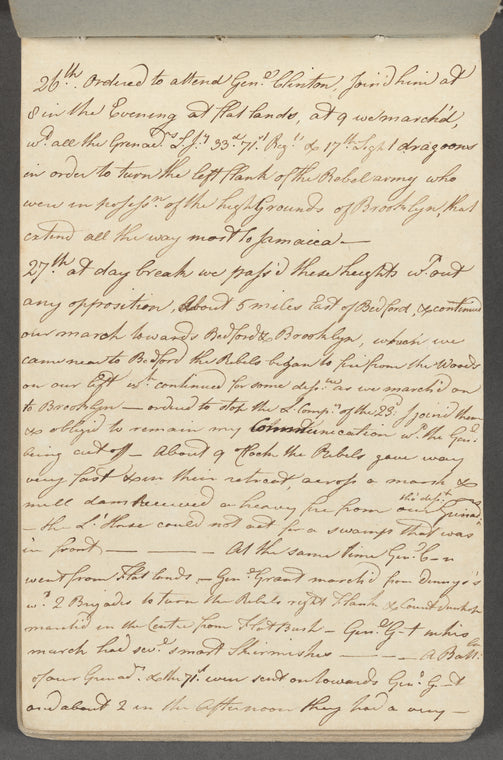 26th. Ordered to attend Genl Clinton, Join'd him at
8 in the Evening at flat lands, at 9 we march'd,
wth all the Grenadrs L. Iy 33d. 71st Regts & 17th Light dragoons
in order to turn the left flank of the Rebel army who
were in possessn of the high Grounds of Brooklyn, that
extend all the way most to Jamaica —
27th at day break we pass'd these heights wth out
any opposition, About 6 miles East of Bedford, & continued
our march towards Bedford & Brooklyn, when we
came near to Bedford the Rebels began to fire from the Woods
on our left wch continued for some as we march'd on
to Brooklyn — ordered to stop the Lt Compy of the 23d. I join'd them
& oblig'd to remain my Communication wth the Genl
being cut off — About 9 Clock the Rebels gave way
very fast & in their retreat, across a marsh &
mill dam Received a heavy fire from our Grenadrs
— the Lt Horse could not act for a swamp that was
in front — — — At the same time Genl
went from Flat lands — Genl Grant march'd from Dennys's
wth 2 Brigades to turn the Rebels right Flank & Count
march'd in the Centre from Flat Bush — Genl G—t in his
march had sevl smart Skirmishes — — — A Battn
of our Grenadrs & the 71st were sent on towards Genl G—t
and about 2 in the Afternoon they had a very —